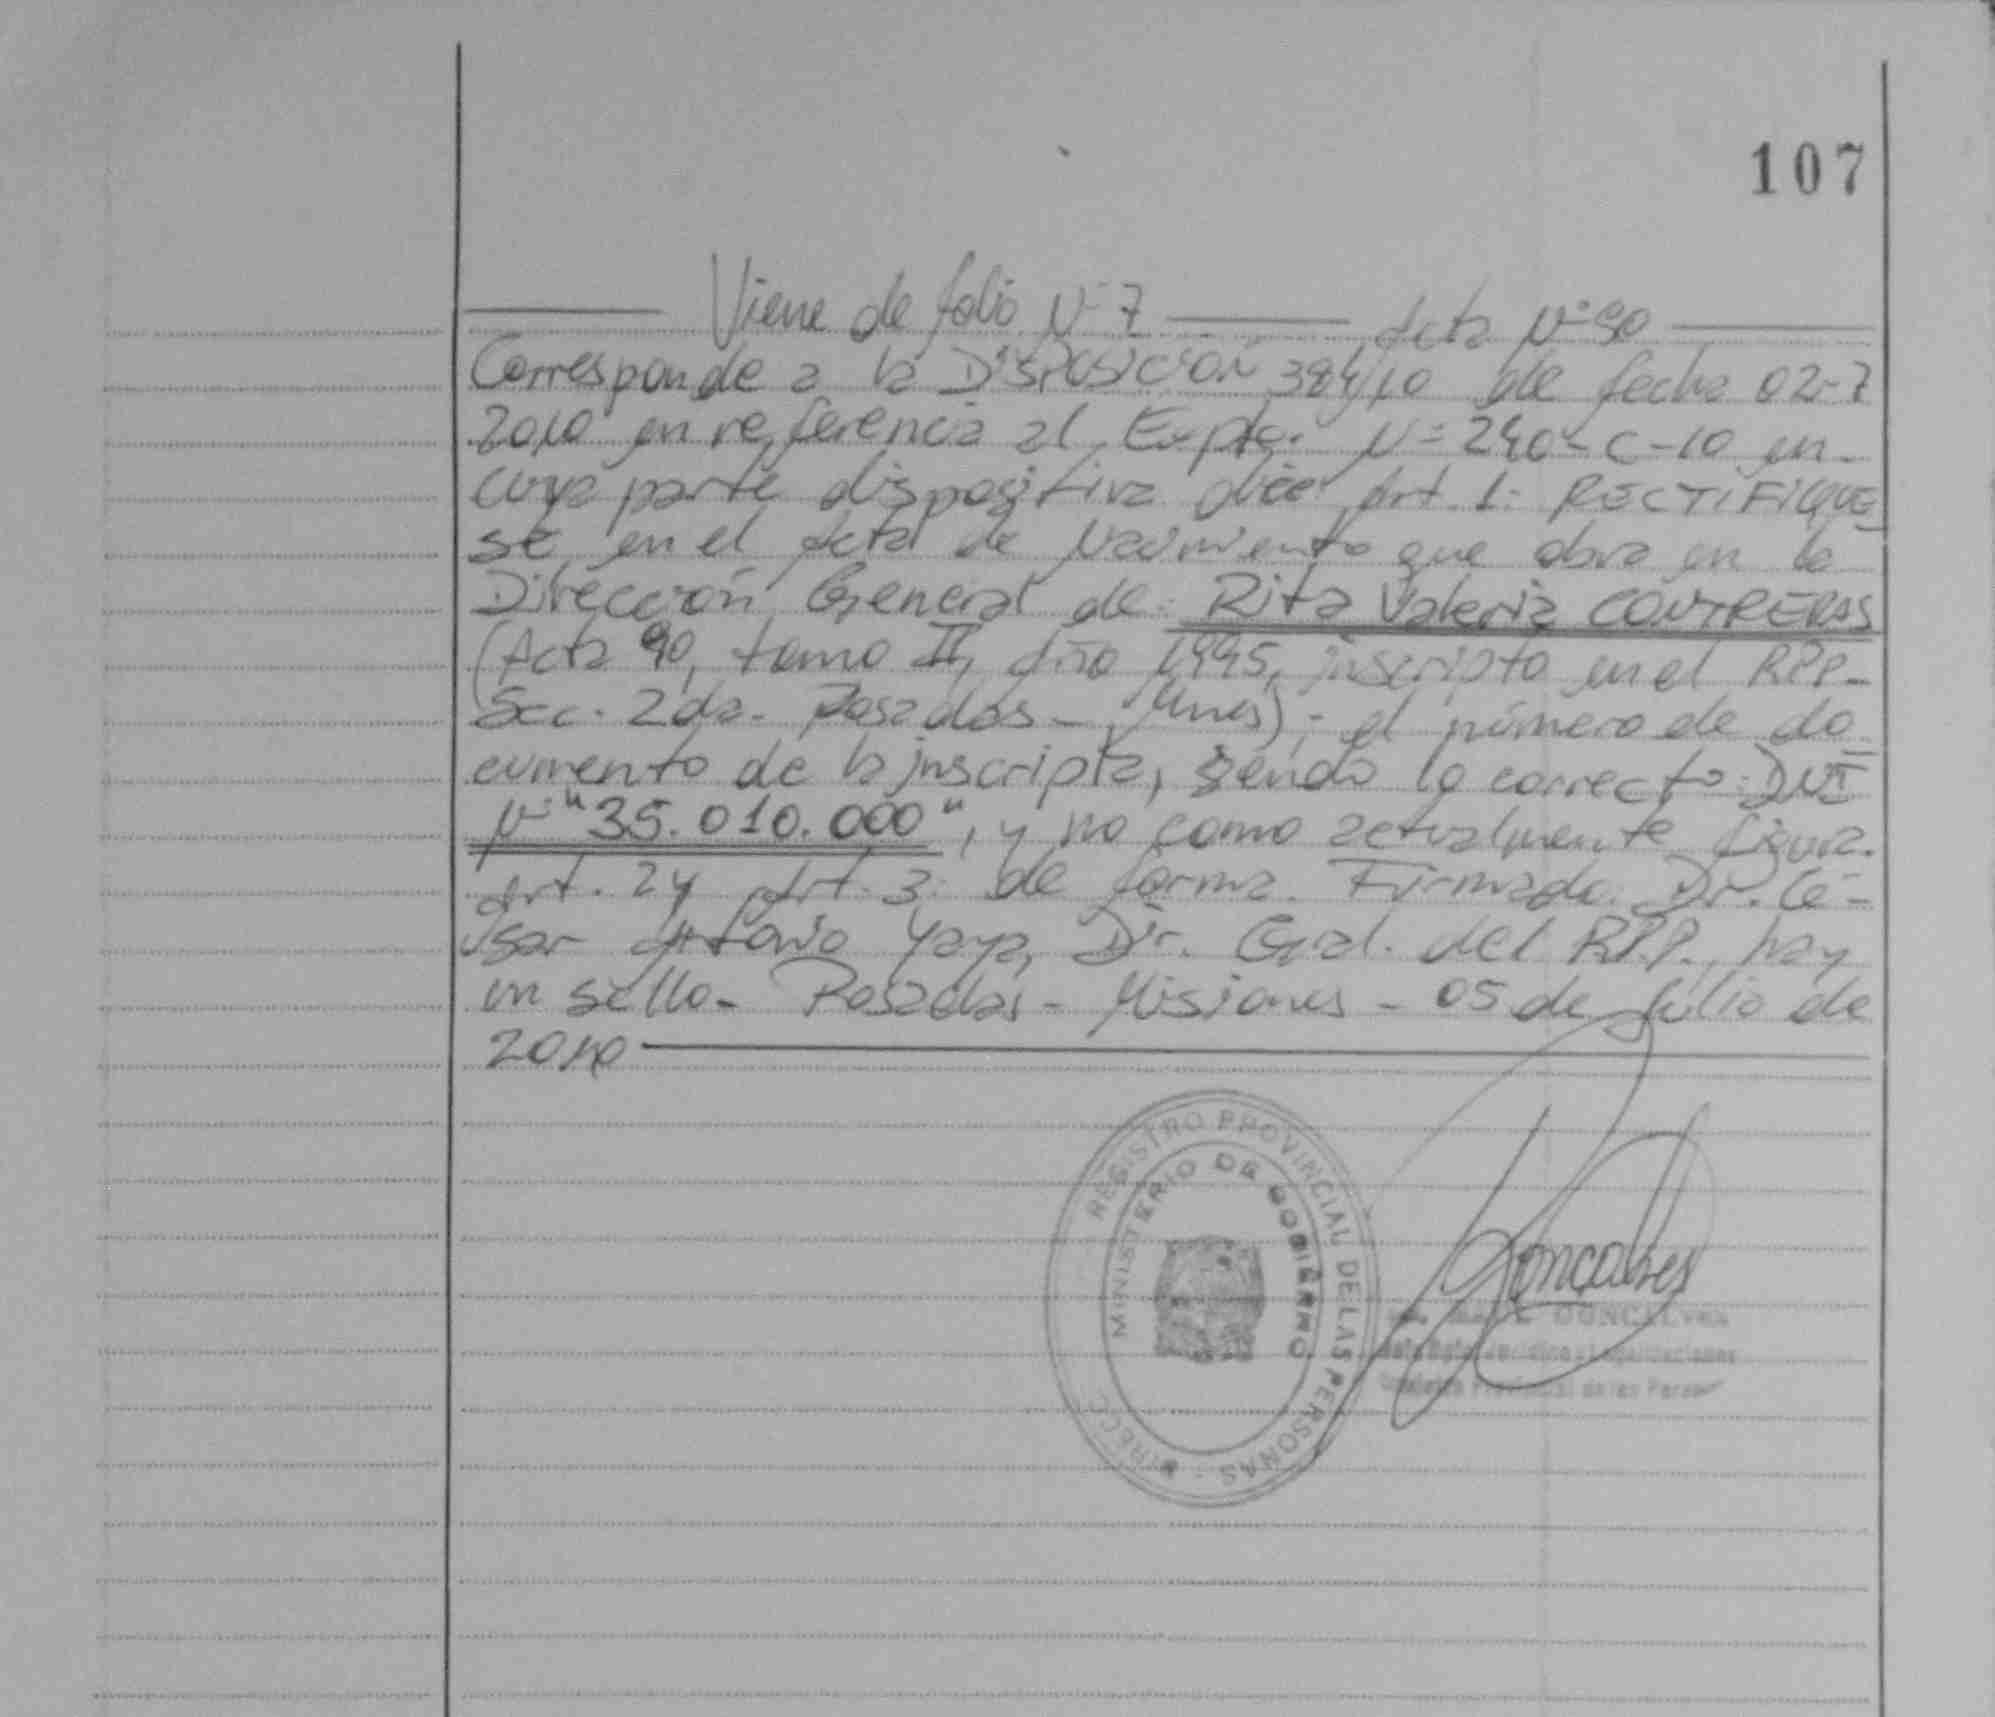 107
Viene de folio Nº 7 Acta Nº 90
Corresponde a la DISPOSICIÓN 384/10 de fecha 02-7
2010 en referencia al Expte. Nº 240-C-10 en
cuya parte dispositiva dice Art. 1: RECTIFIQUE
se en el Acta de Nacimiento que obra en la
Dirección General de: Rita Valeria CONTRERAS
(Acta 90, tomo II, Año 1995, inscripto en el RPP-
Sec. 2da. Posadas - Mnes); el número de do
cumento de la inscripta, siendo lo correcto: DNI
Nº "35.010.000", y no como actualmente figura.
Art. 2 y Art. 3: de forma. Firmado: Dr. Cé-
sar Antonio Yaya, Dir. Gral. del R.P.P., hay
un sello - Posadas - Misiones - 05 de Julio de
2010
REGISTRO PROVINCIAL DE LAS PERSONAS - DIRECC
MINISTERIO DE GOBIERNO
Gonçalves
GONCALVES
Provincial de las Person